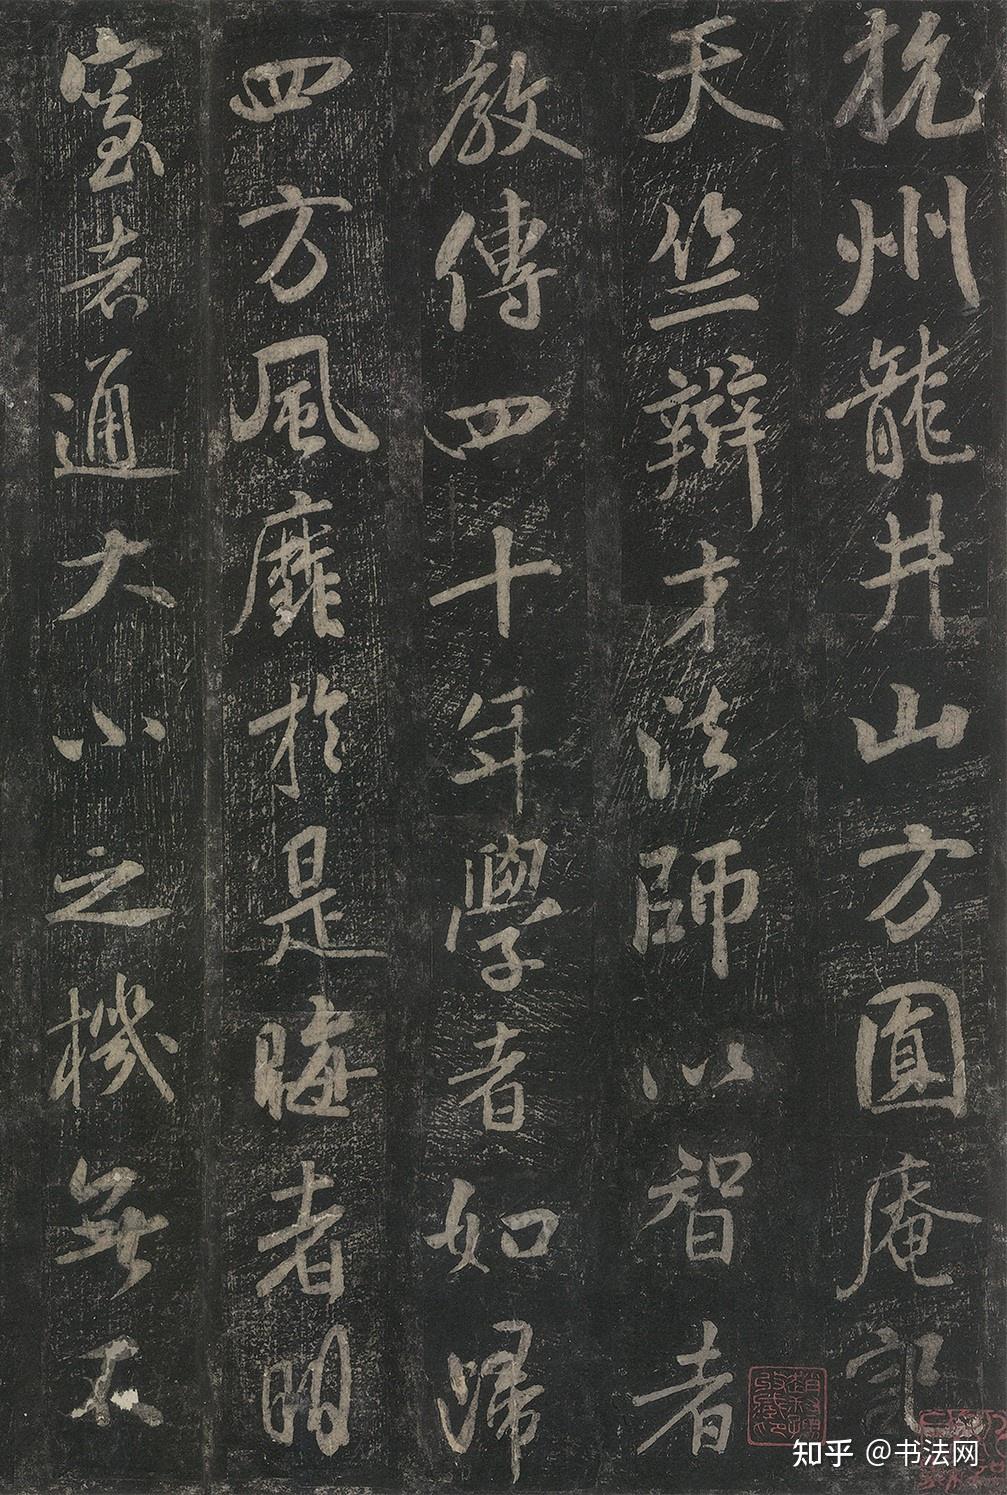 杭州龍井山方圓庵記
天竺辯才法師以智者
教傳四十年學者如歸
四方風靡於是晦者明
窒者通大小之機無不
知乎 @书法网